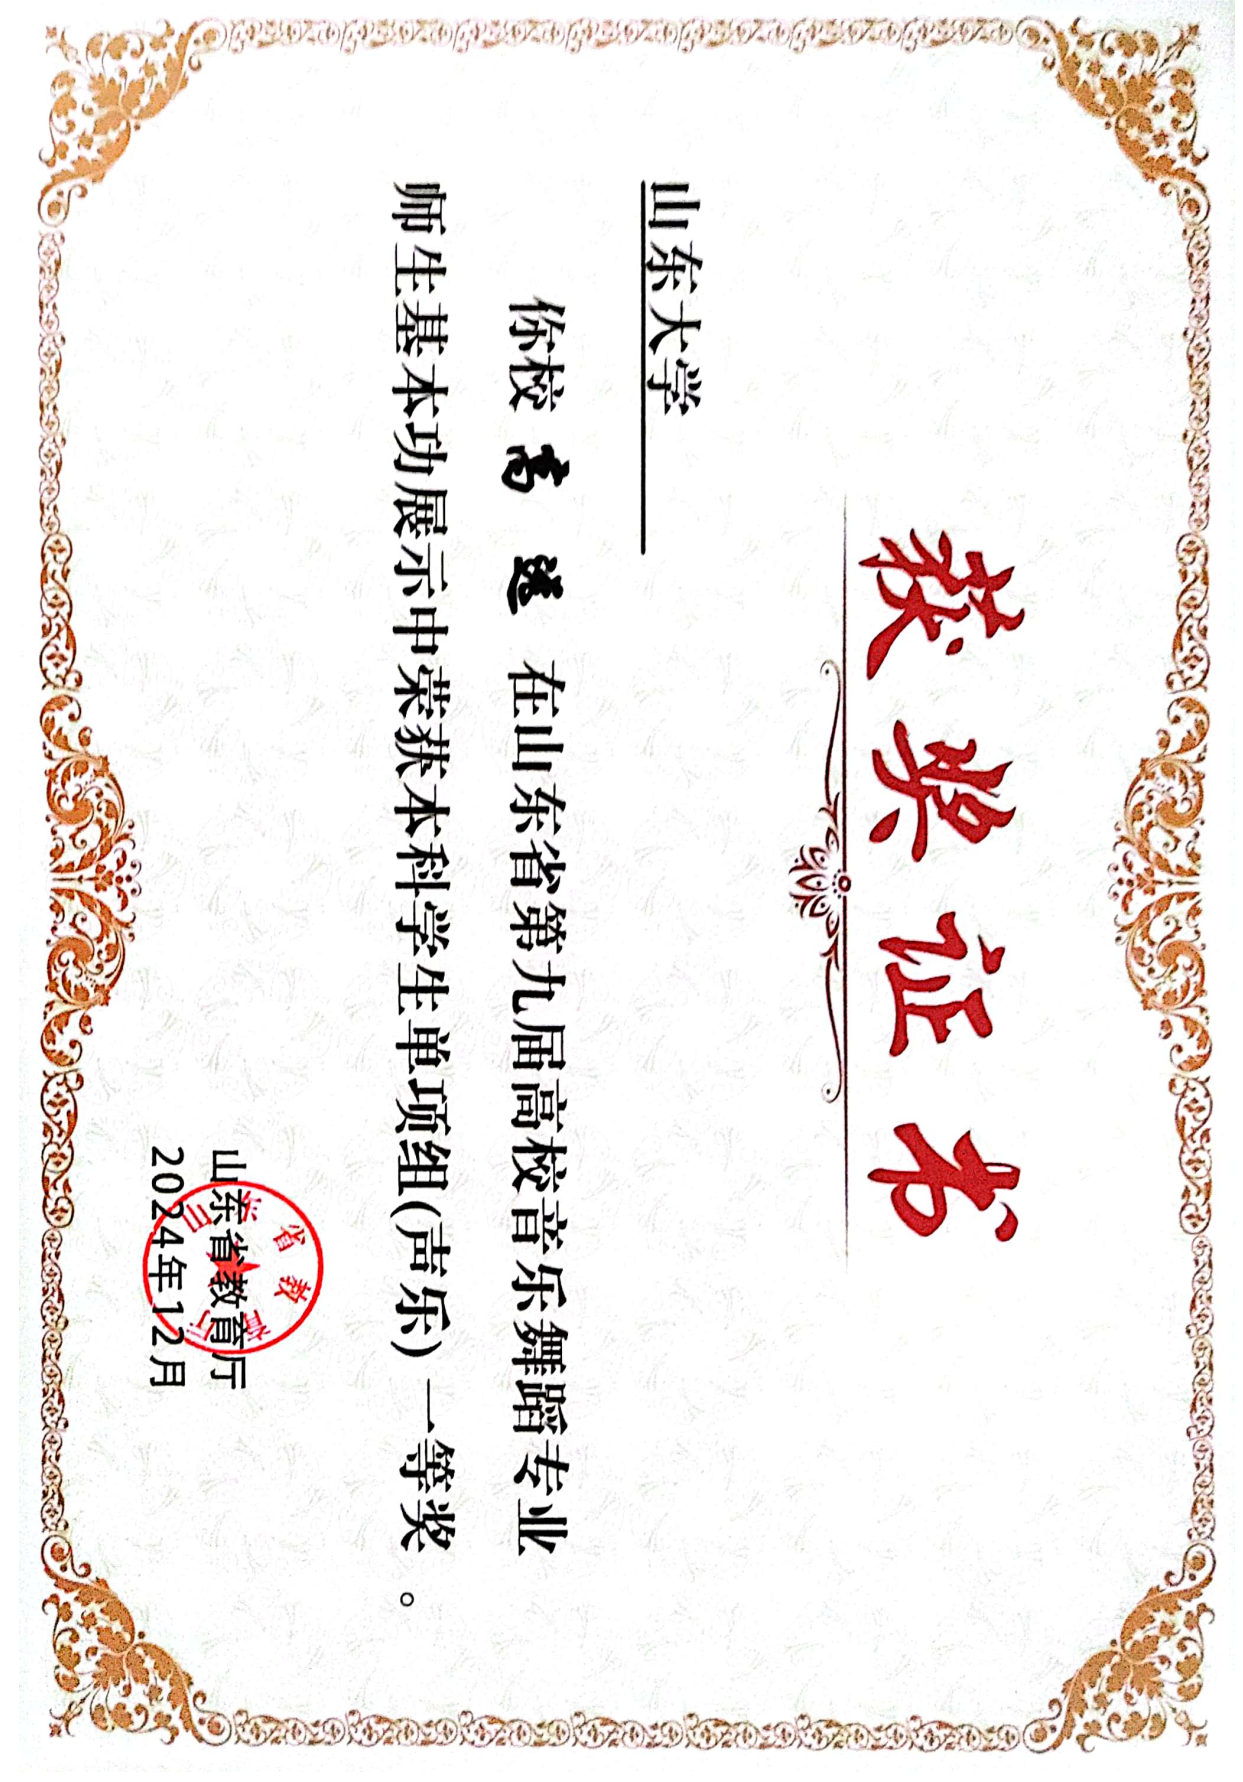 获奖证书
山东大学
你校 高 在山东省第九届高校音乐舞蹈专业
师生基本功展示中荣获本科学生单项组(声乐)一等奖。
山东省教育厅
2024年12月